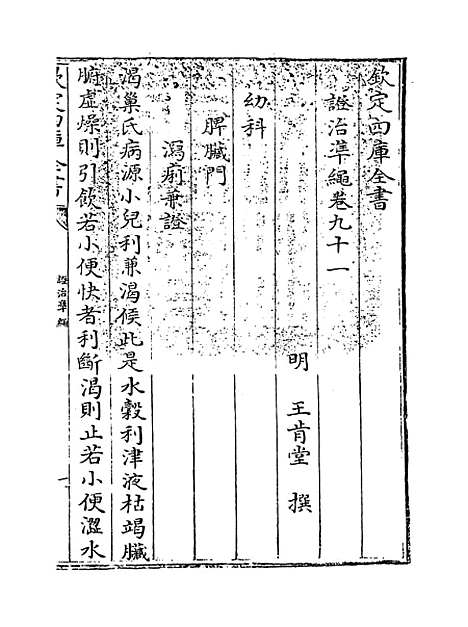 欽定四庫全書
證治準繩卷九十一
明 王肯堂 撰
幼科
脾臟門
瀉痢兼證
渴巢氏病源小兒利兼渴候此是水穀利津液枯竭臟
腑虛燥則引飲若小便快者利斷渴則止若小便澀水
欽定四庫全書
證治準繩
一